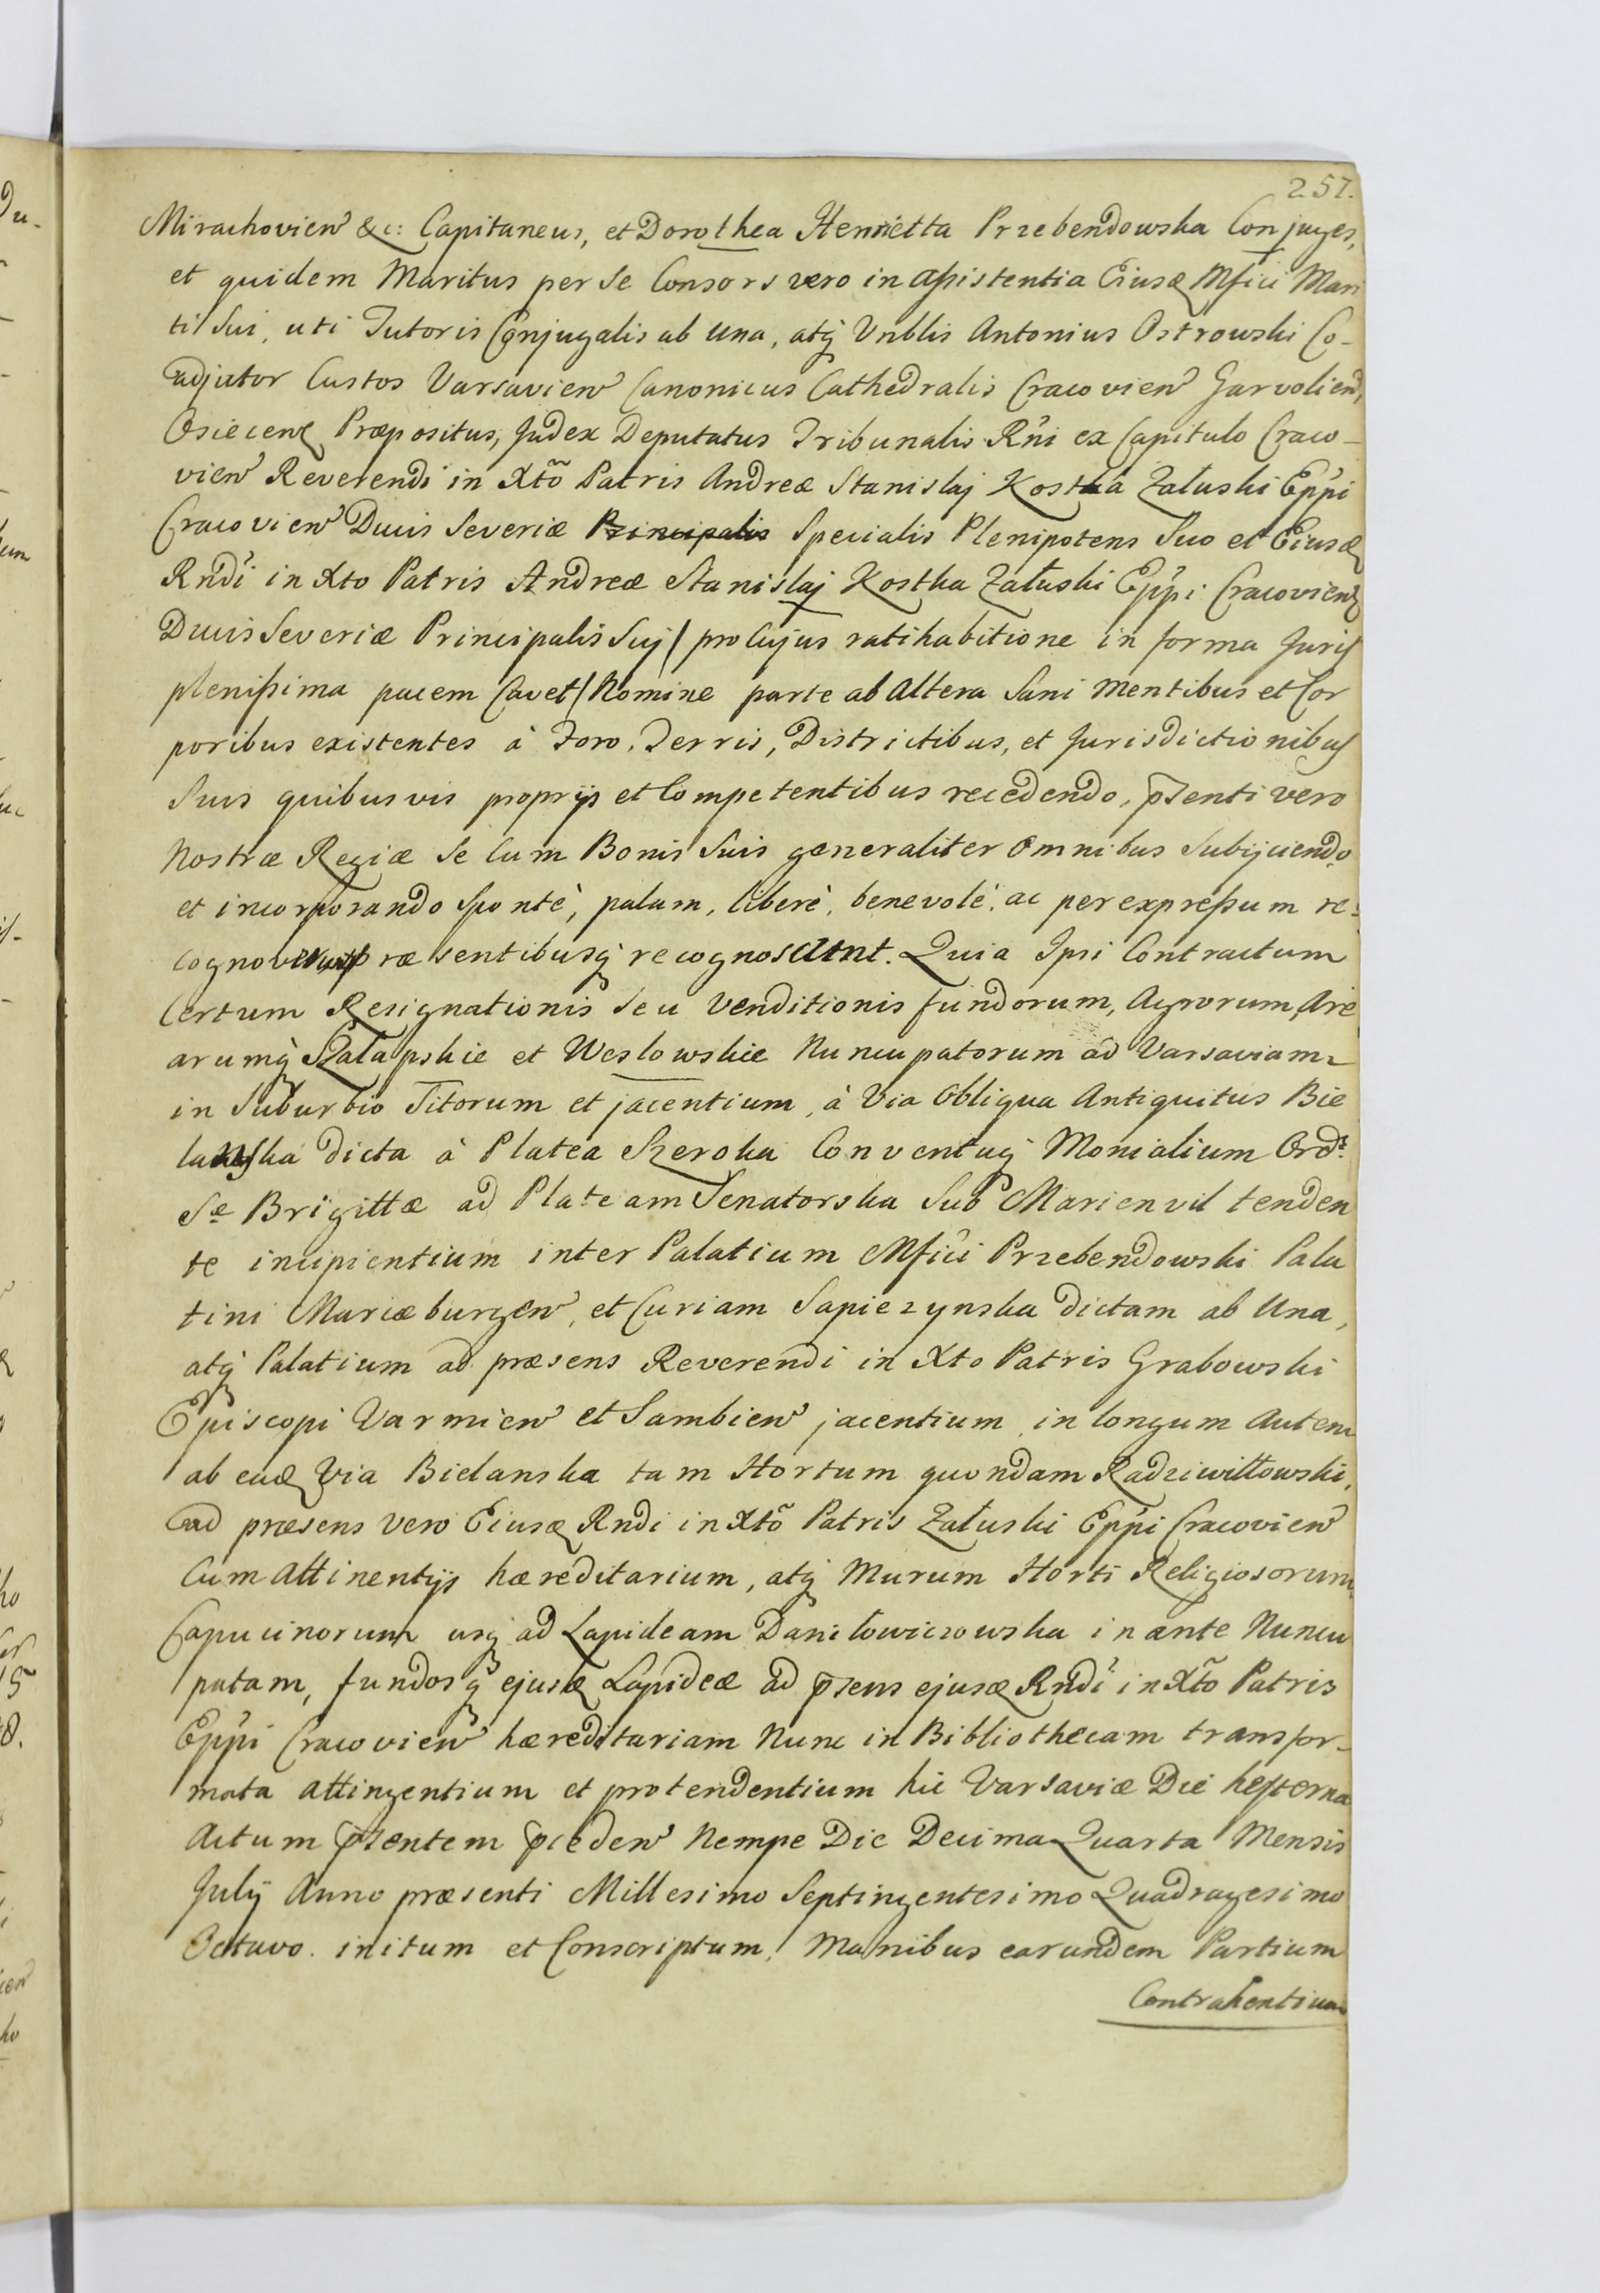 257.
Mirachovien &c: Capitaneus, et Dorothea Henrietta Przebendowska Conjuges,
et quidem Maritus per Se Consors vero in assistentia Eiusdē Mfici Mari
ti Sui, uti Tutoris Conjugalis ab una, atq̃ Vnblis Antonius Ostrowski Co-
adjutor Custos Varsavien Canonicus Cathedralis Cracovien Garvolien,
Osiecen Præpositus, Judex Deputatus Tribunalis Rñi ex Capitulo Craco-
vien Reverendi in Xtõ Patris Andreæ Stanislaj Kostka Załuski Eppi
Cracovien Ducis Severiæ Principalis Specialis Plenipotens Suo et Eiusdē
Rndi in Xto Patris Andreæ Stanislaj Kostka Załuski Eppi Cracovien
Ducis Severiæ Principalis Suj / pro Cujus ratihabitione in forma Juris
plenissima pacem Cavet / Nomine parte ab Altera Sani Mentibus et Cor
poribus existentes à Foro, Terris, Districtibus, et Jurisdictionibus
Suis quibusvis proprijs et Competentibus recedendo, p̃senti vero
Nostræ Regiæ Se Cum Bonis Suis generaliter Omnibus Subijciendo
et incorporando Spontè, palam, liberè, benevolè, ac per expressum re-
cognoverunt præsentibusq̃ recognoscunt. Quia Ipsi Contractum
Certum Resignationis Seu Venditionis fundorum, Agrorum, Are
arumq̃ Szałapskie et Wesłowskie Nuncupatorum ad Varsaviam
in Suburbio Sitorum et jacentium, à Via Obliqua Antiquitus Bie
lanska dicta à Platea Szeroka Conventus Monialium Ord:
Sæ Brigittæ ad Plateam Senatorska Sub Marienvil tenden
te incipientium inter Palatium Mfici Przebendowski Pala
tini Mariæburgen, et Curiam Sapiezynska dictam ab Una,
atq̃ Palatium ad præsens Reverendi in Xto Patris Grabowski
Episcopi Varmien et Sambien jacentium, in longum Autem
ab eadē Via Bielanska tam Hortum quondam Radziwiłłowski,
ad præsens vero Eiusdē Rndi in Xtõ Patris Załuski Eppi Cracovien
Cum Attinentijs hæreditarium, atq̃ Murum Horti Religiosorum
Capucinorum usq̃ ad Lapideam Daniłowiczowska in ante Nuncu
patam, fundosq̃ ejusdē Lapideæ ad p̃sens ejusdē Rndi in Xtõ Patris
Eppi Cracovien hæreditariam Nunc in Bibliothecam transfor-
mata attingentium et protendentium hic Varsaviæ Die hesterna
Actum p̃sentem p̃ceden Nempe Die Decima Quarta Mensis
Julij Anno præsenti Millesimo Septingentesimo Quadragesimo
Octavo. initum et Conscriptum, Manibus earundem Partium
Contrahentium